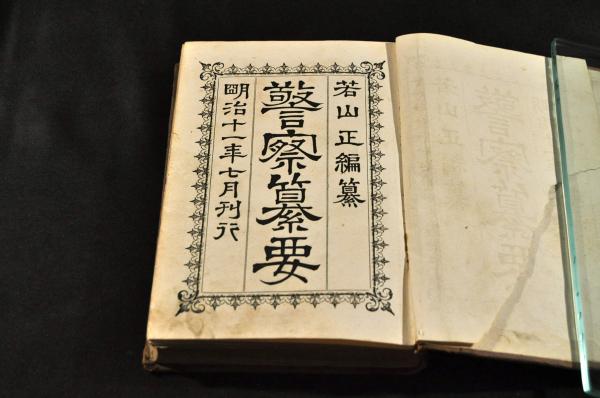 若山正編纂
警察纂要
明治十一年七月刊行